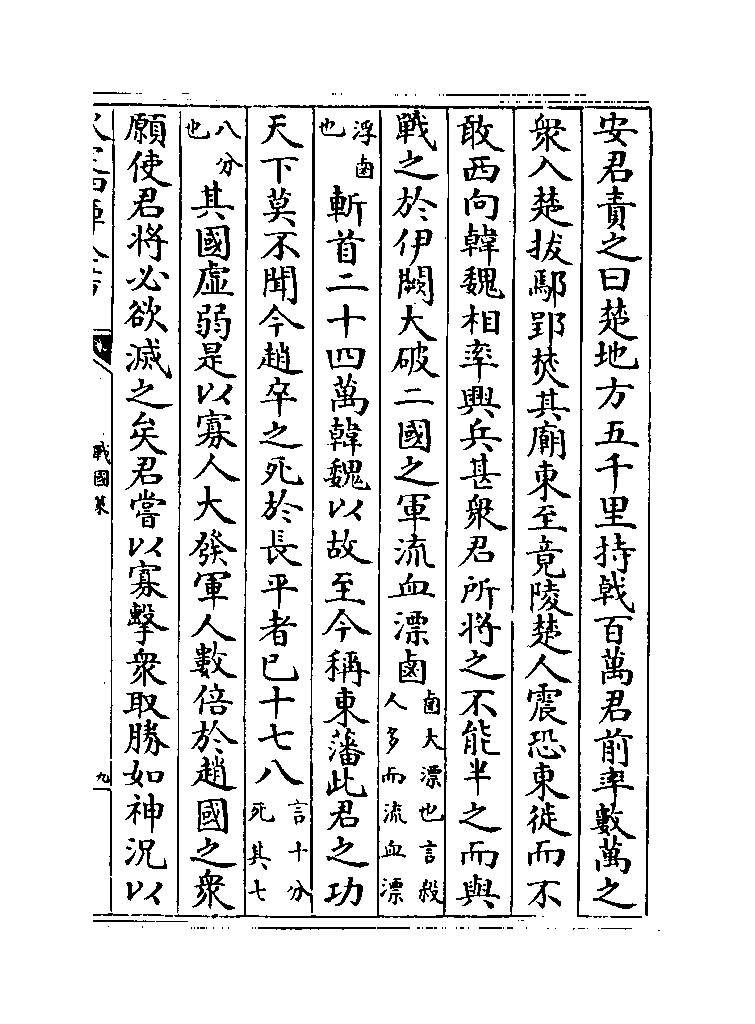 安君責之曰楚地方五千里持戟百萬君前率數萬之
衆入楚拔鄢郢焚其廟東至竟陵楚人震恐東徙而不
敢西向韓魏相率興兵甚衆君所將之不能半之而與
戰之於伊闕大破二國之軍流血漂鹵鹵大漂也言殺人多而流血漂
浮鹵也斬首二十四萬韓魏以故至今稱東藩此君之功
天下莫不聞今趙卒之死於長平者已十七八言十分死其七
八分也其國虛弱是以寡人大發軍人數倍於趙國之衆
願使君將必欲滅之矣君嘗以寡擊衆取勝如神況以
戰國策
九